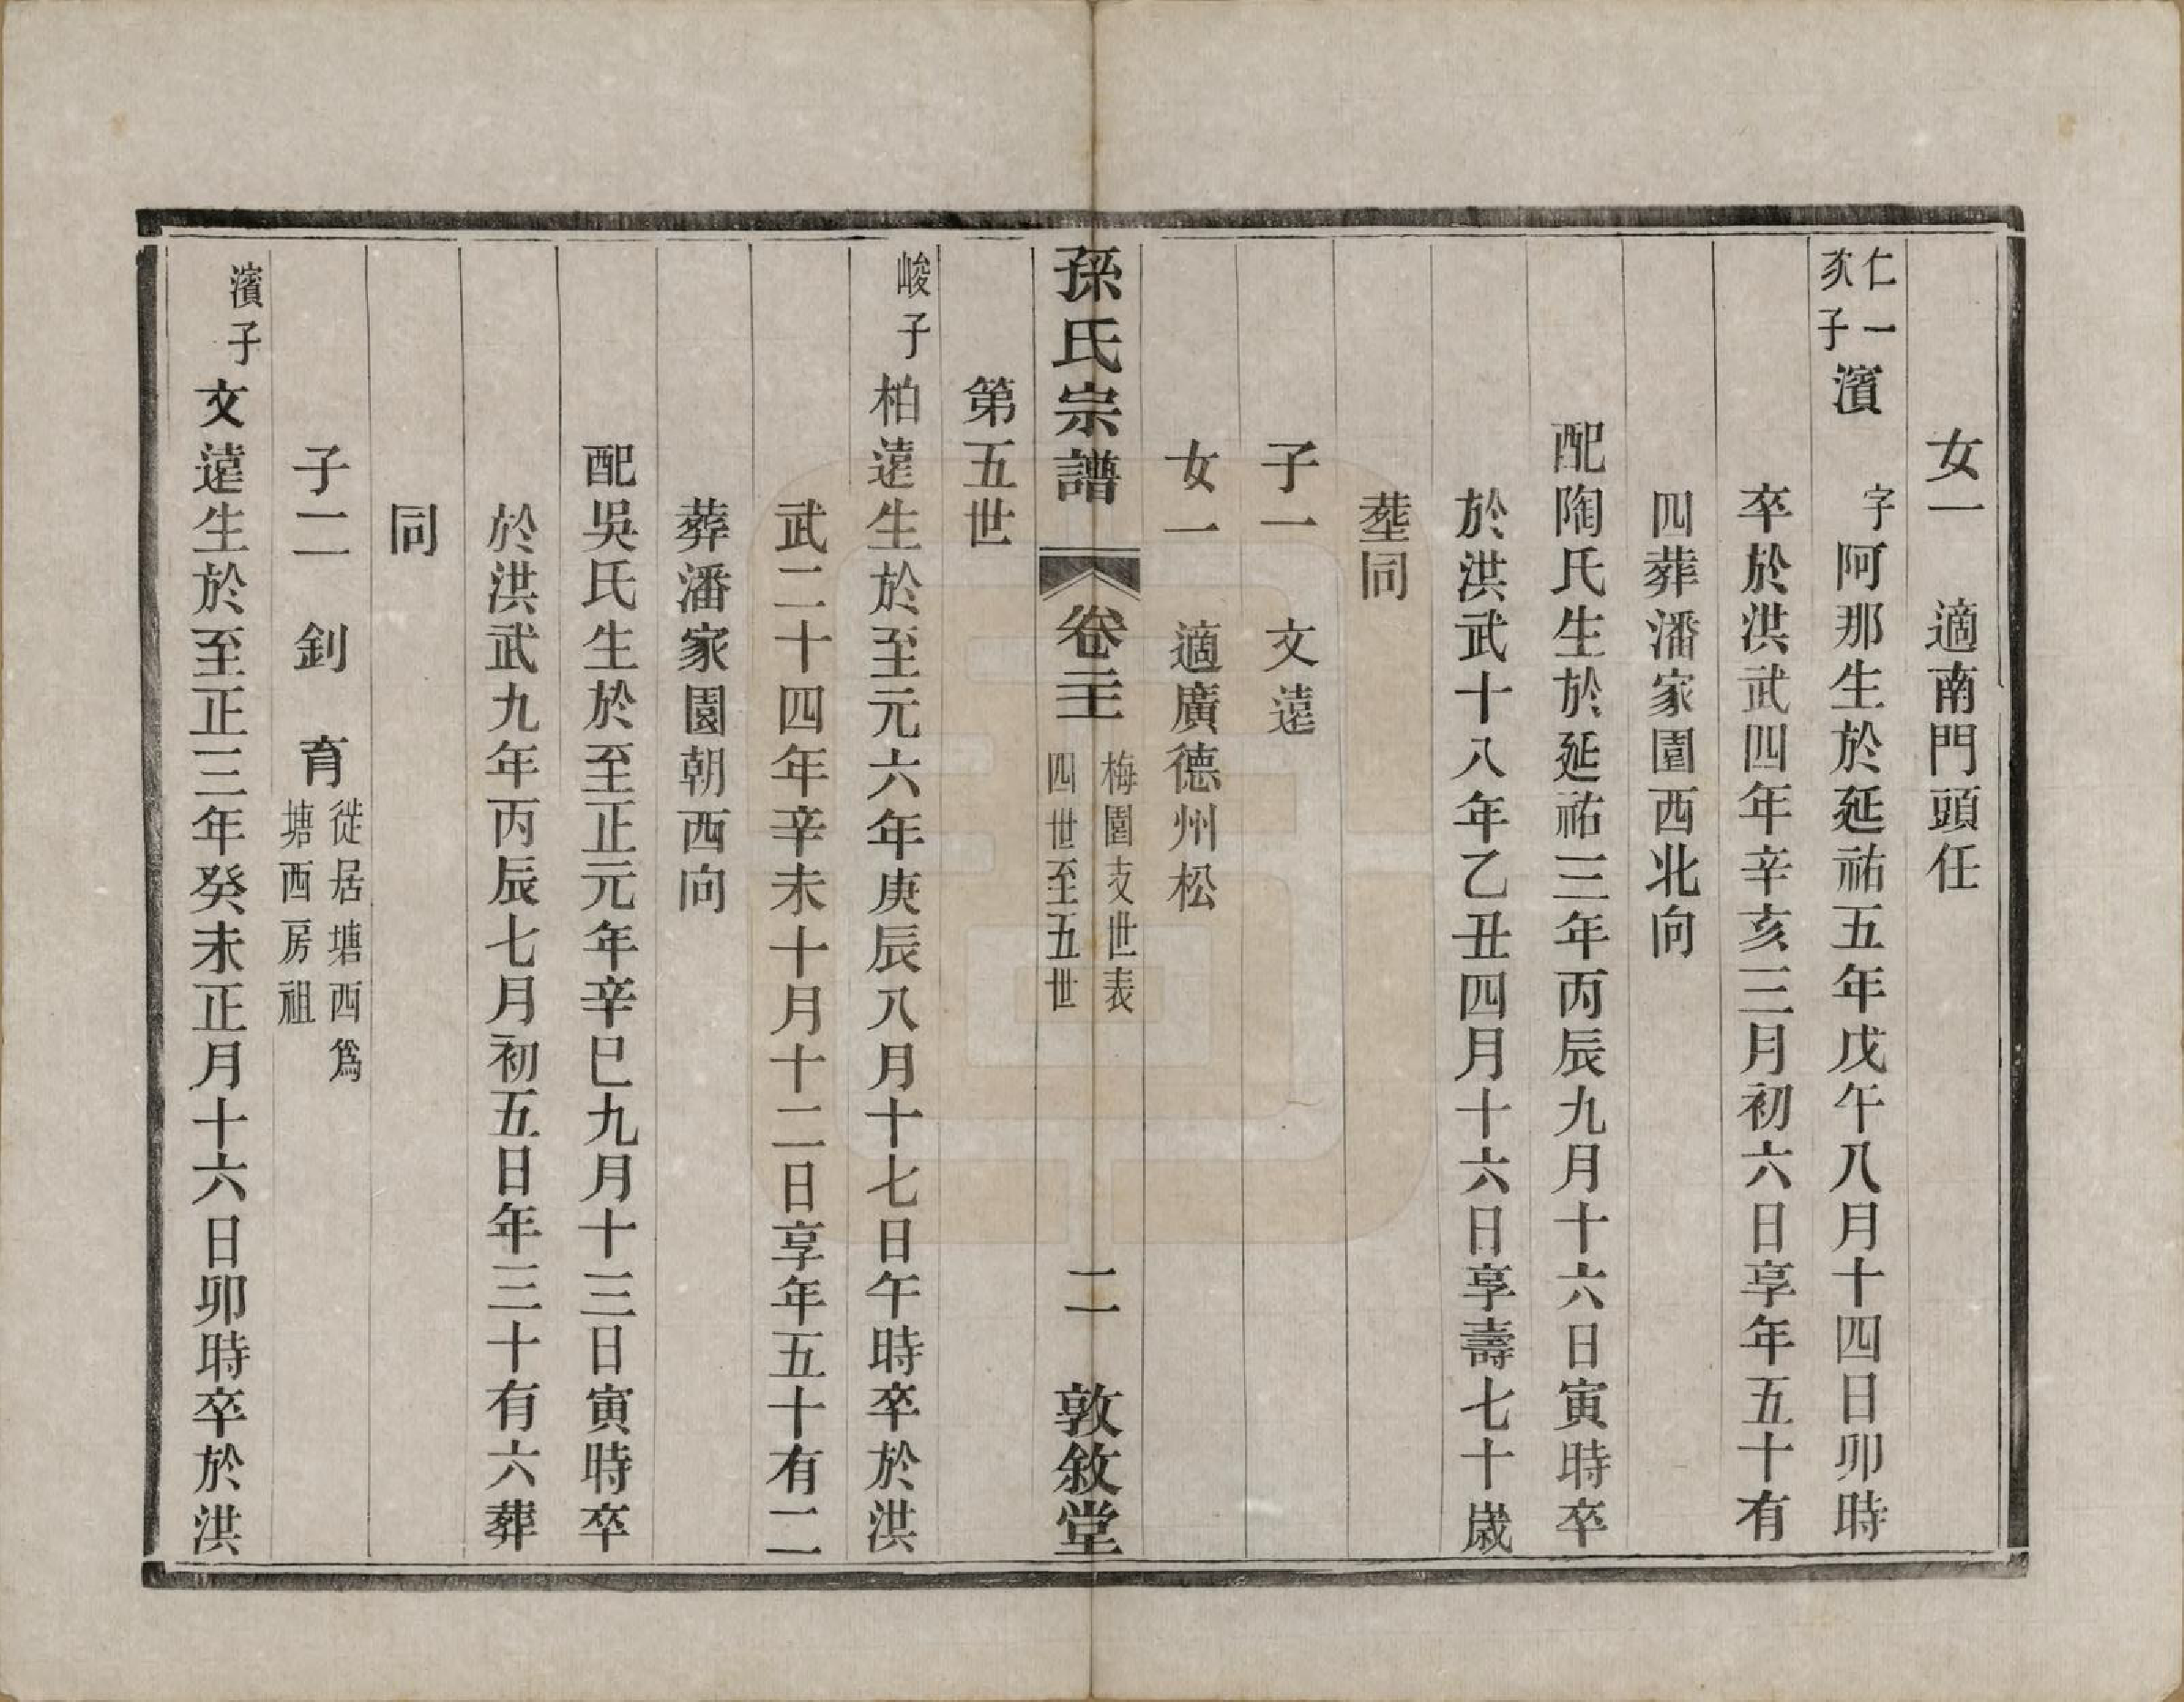 女一　適南門頭任
仁一
亥子
濱　字阿那生於延祐五年戊午八月十四日卯時
卒於洪武四年辛亥三月初六日享年五十有
四葬潘家園西北向
配陶氏生於延祐三年丙辰九月十六日寅時卒
於洪武十八年乙丑四月十六日享壽七十歲
塟同
子一　文遠
女一　適廣德州松
孫氏宗譜　卷二
梅園支世表
四世至五世
二　敦敘堂
第五世
峻子　柏遠生於至元六年庚辰八月十七日午時卒於洪
武二十四年辛未十月十二日享年五十有二
葬潘家園朝西向
配吳氏生於至正元年辛巳九月十三日寅時卒
於洪武九年丙辰七月初五日年三十有六葬
同
子二　釗　育
徙居塘西爲
塘西房祖
濱子　文遠生於至正三年癸未正月十六日卯時卒於洪